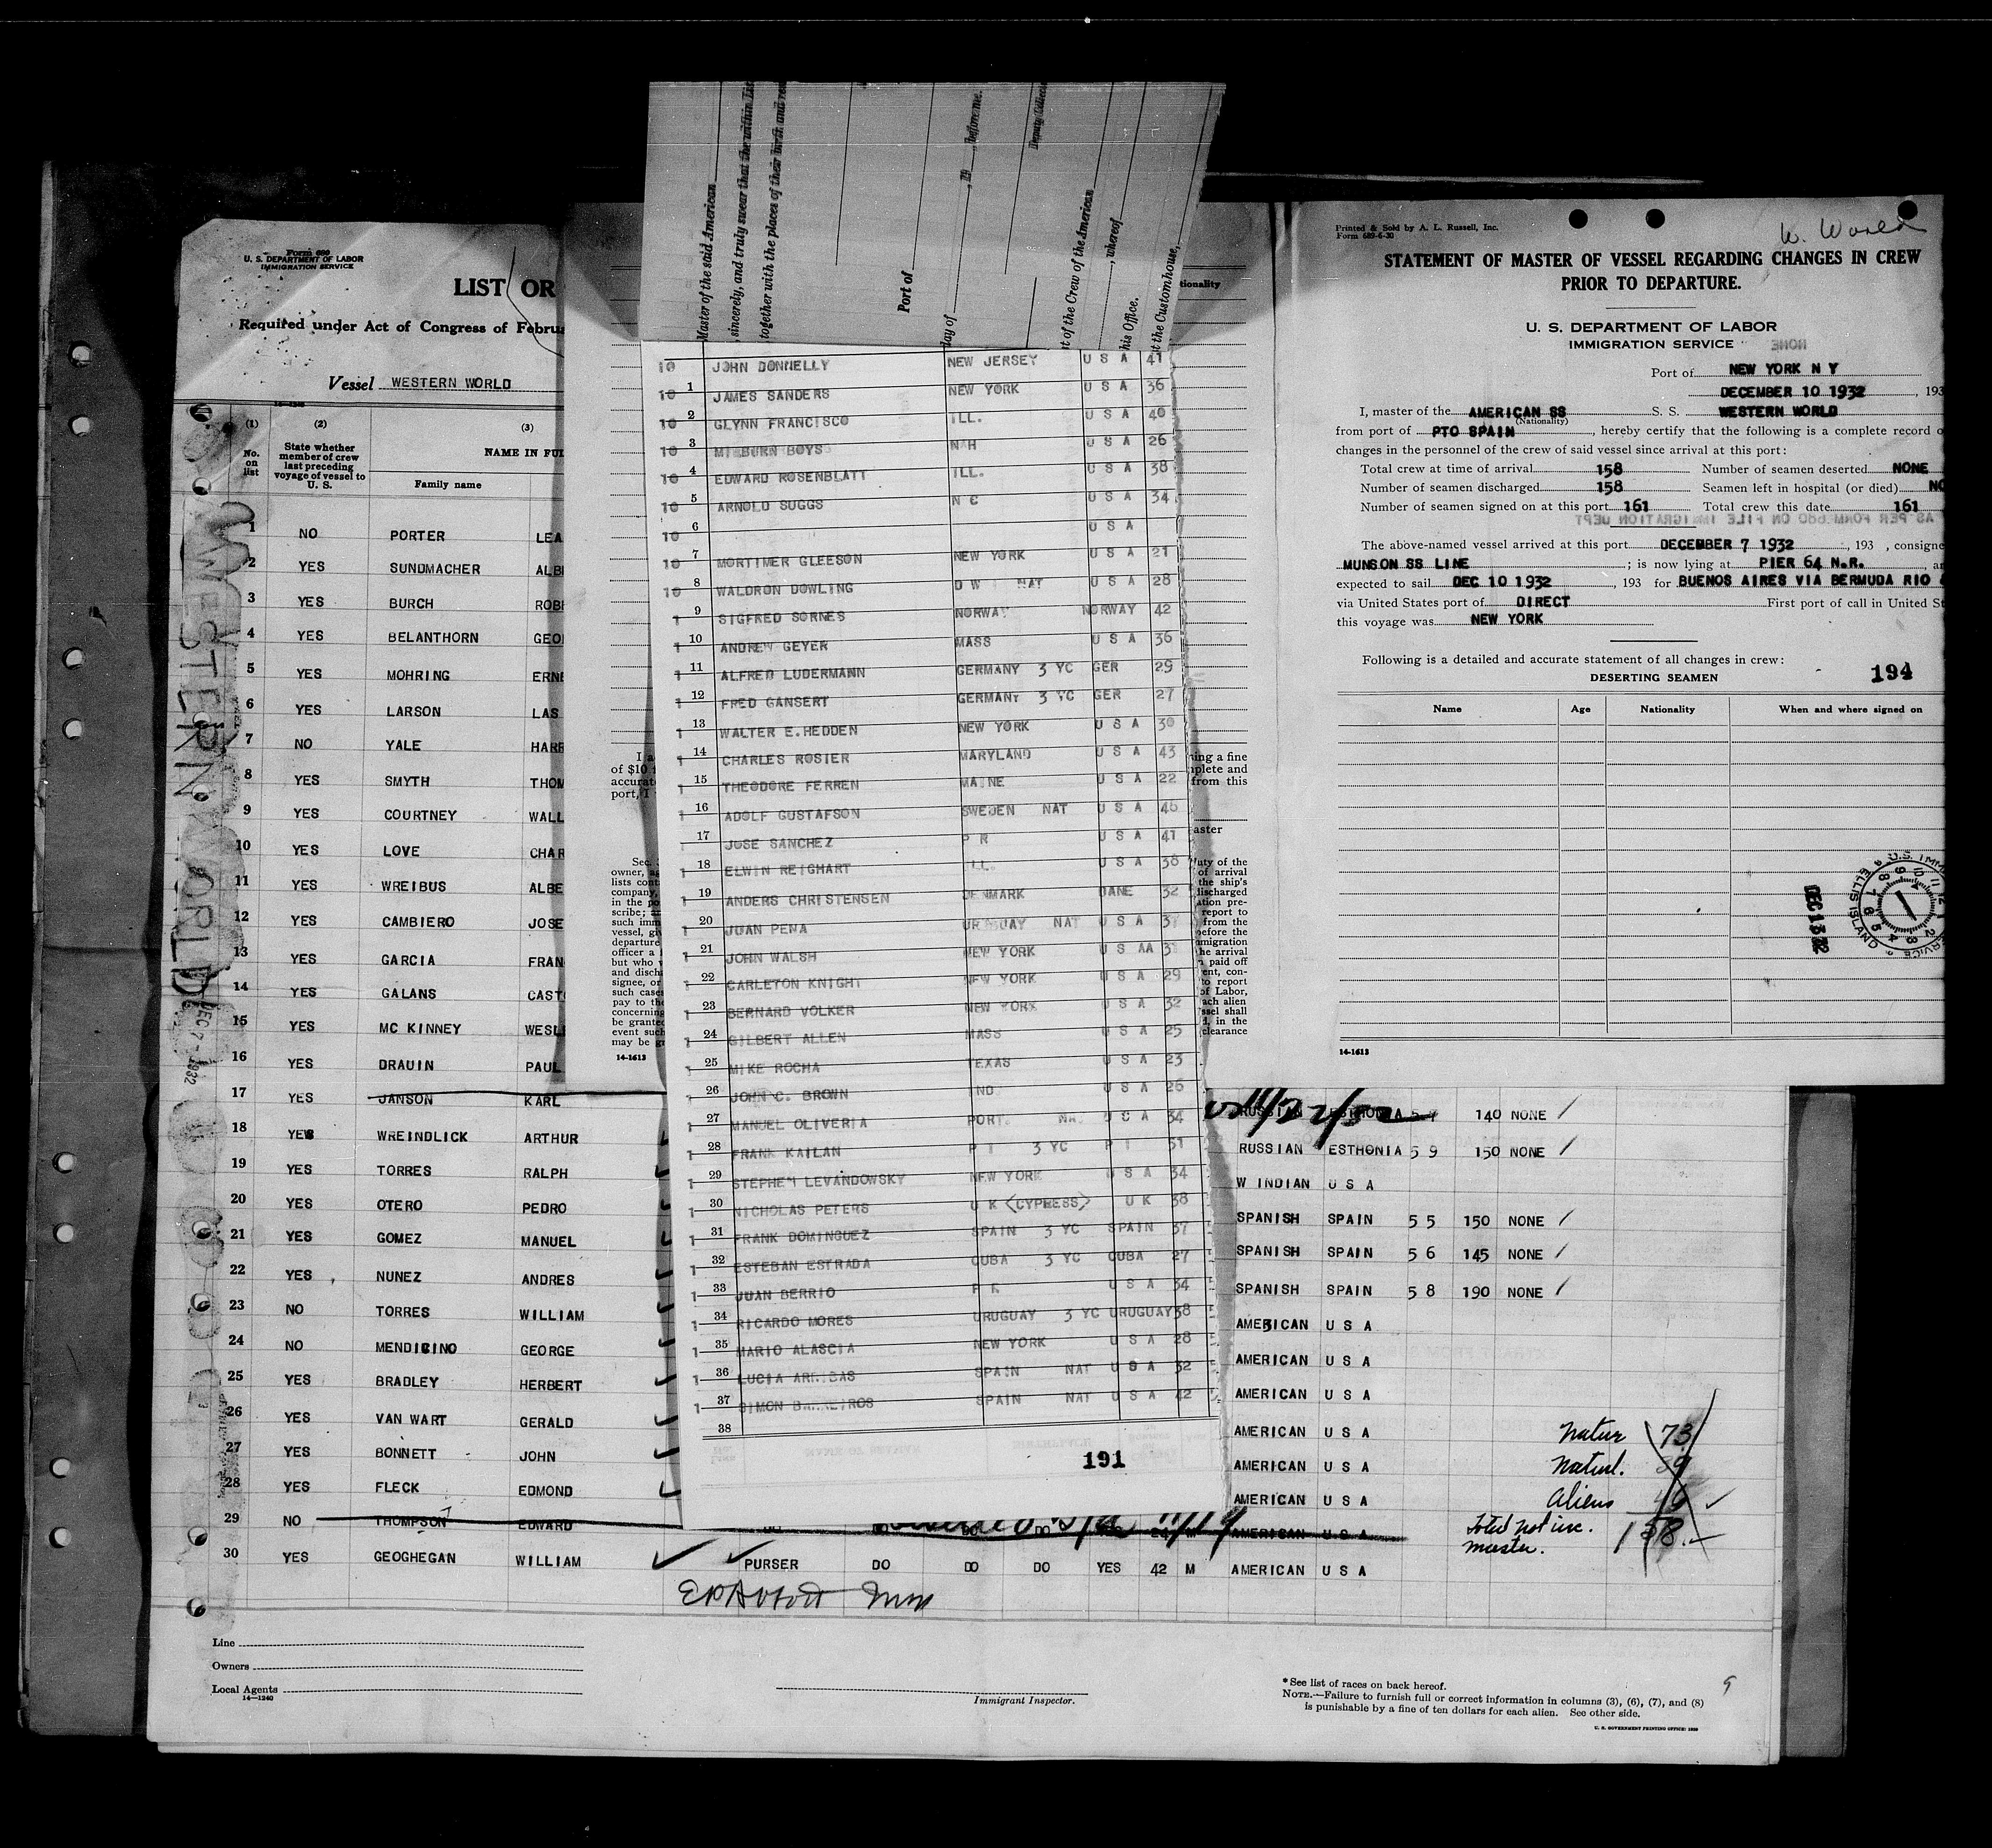 Form 680
U. S. DEPARTMENT OF LABOR
IMMIGRATION SERVICE
LIST OR
Required under Act of Congress of Februa
Vessel WESTERN WORLD
(1) (2) (3)
No. on list
State whether member of crew last preceding voyage of vessel to U. S.
NAME IN FUL
Family name
1 NO PORTER LEA
2 YES SUNDMACHER ALB
3 YES BURCH ROB
4 YES BELANTHORN GEO
5 YES MOHRING ERN
6 YES LARSON LAS
7 NO YALE HARR
8 YES SMYTH THOM
9 YES COURTNEY WALL
10 YES LOVE CHAR
11 YES WREIBUS ALBE
12 YES CAMBIERO JOSE
13 YES GARCIA FRAN
14 YES GALANS CAST
15 YES MC KINNEY WESL
16 YES DRAUIN PAUL
17 YES JANSON KARL 140 NONE
18 YEW WREINDLICK ARTHUR RUSSIAN ESTHONIA 5 9 150 NONE
19 YES TORRES RALPH W INDIAN U S A
20 YES OTERO PEDRO SPANISH SPAIN 5 5 150 NONE
21 YES GOMEZ MANUEL SPANISH SPAIN 5 6 145 NONE
22 YES NUNEZ ANDRES SPANISH SPAIN 5 8 190 NONE
23 NO TORRES WILLIAM AMERICAN U S A
24 NO MENDICINO GEORGE AMERICAN U S A
25 YES BRADLEY HERBERT AMERICAN U S A
26 YES VAN WART GERALD AMERICAN U S A
27 YES BONNETT JOHN AMERICAN U S A
28 YES FLECK EDMOND AMERICAN U S A
29 NO THOMPSON EDWARD DO DO M AMERICAN U S A
30 YES GEOGHEGAN WILLIAM PURSER DO DO DO YES 42 M AMERICAN U S A
Natur 73
Naturl.
Aliens
Total not inc. 158
master.
Line
Owners
Local Agents
14—1240
Immigrant Inspector.
*See list of races on back hereof.
NOTE.—Failure to furnish full or correct information in columns (3), (6), (7), and (8)
is punishable by a fine of ten dollars for each alien. See other side.
U. S. GOVERNMENT PRINTING OFFICE: 1930
9
WESTERN WORLD
DEC 7 - 1932
Master of the said American
sincerely, and truly swear that the within Lis
together with the places of their birth and res
Port of
day of , 19 , before me.
Deputy Collecto
t of the Crew of the American
, whereof
his Office.
t the Customhouse,
tionality
10 JOHN DONNELLY NEW JERSEY U S A 41
10 1 JAMES SANDERS NEW YORK U S A 36
10 2 GLYNN FRANCISCO ILL. U S A 40
10 3 MILBURN BOYS N H U S A 26
10 4 EDWARD ROSENBLATT ILL. U S A 38
10 5 ARNOLD SUGGS N C U S A 34
10 6 U S A
10 7 MORTIMER GLEESON NEW YORK U S A 21
10 8 WALDRON DOWLING D W I NAT U S A 28
1 9 SIGFRED SORNES NORWAY NORWAY 42
1 10 ANDREW GEYER MASS U S A 36
1 11 ALFRED LUDERMANN GERMANY 3 YC GER 29
1 12 FRED GANSERT GERMANY 3 YC GER 27
1 13 WALTER E.HEDDEN NEW YORK U S A 30
1 14 CHARLES ROSIER MARYLAND U S A 43
1 15 THEODORE FERREN MAINE U S A 22
1 16 ADOLF GUSTAFSON SWEDEN NAT U S A 46
1 17 JOSE SANCHEZ P R U S A 41
1 18 ELWIN REIGHART ILL. U S A 36
1 19 ANDERS CHRISTENSEN DENMARK DANE 32
1 20 JUAN PENA URUGUAY NAT U S A
1 21 JOHN WALSH NEW YORK U S AA
1 22 CARLETON KNIGHT NEW YORK U S A 29
1 23 BERNARD VOLKER NEW YORK U S A 32
1 24 GILBERT ALLEN MASS U S A 25
1 25 MIKE ROCHA TEXAS U S A 23
1 26 JOHN C. BROWN IND U S A 26
1 27 MANUEL OLIVERIA PORT. NAT U S A 34
1 28 FRANK KAILAN P I 3 YC P I 31
1 29 STEPHEN LEVANDOWSKY NEW YORK U S A 34
1 30 NICHOLAS PETERS U K (CYPRESS) U K 38
1 31 FRANK DOMINGUEZ SPAIN 3 YC SPAIN 37
1 32 ESTEBAN ESTRADA CUBA 3 YC CUBA 27
1 33 JUAN BERRIO P R U S A 34
1 34 RICARDO MORES URUGUAY 3 YC URUGUAY 38
1 35 MARIO ALASCIA NEW YORK U S A 28
1 36 LUCIA ARRIBAS SPAIN NAT U S A 32
1 37 SIMON SPAIN NAT U S A 42
38
191
Printed & Sold by A. L. Russell, Inc.
Form 689-6-30
W. World
STATEMENT OF MASTER OF VESSEL REGARDING CHANGES IN CREW
PRIOR TO DEPARTURE.
U. S. DEPARTMENT OF LABOR
IMMIGRATION SERVICE
Port of NEW YORK N Y
DECEMBER 10 1932, 193
I, master of the AMERICAN SS S. S. WESTERN WORLD
(Nationality)
from port of PTO SPAIN, hereby certify that the following is a complete record o
changes in the personnel of the crew of said vessel since arrival at this port:
Total crew at time of arrival 158 Number of seamen deserted NONE
Number of seamen discharged 158 Seamen left in hospital (or died) NO
Number of seamen signed on at this port 161 Total crew this date 161
AS PER FORM 680 ON FILE IMMIGRATION DEPT
The above-named vessel arrived at this port DECEMBER 7 1932, 193 , consigne
MUNSON SS LINE; is now lying at PIER 64 N.R. , an
expected to sail DEC 10 1932, 193 for BUENOS AIRES VIA BERMUDA RIO
via United States port of DIRECT First port of call in United St
this voyage was NEW YORK
Following is a detailed and accurate statement of all changes in crew:
DESERTING SEAMEN 194
Name Age Nationality When and where signed on
DEC 13 32
ELLIS ISLAND
14-1613
14-1613